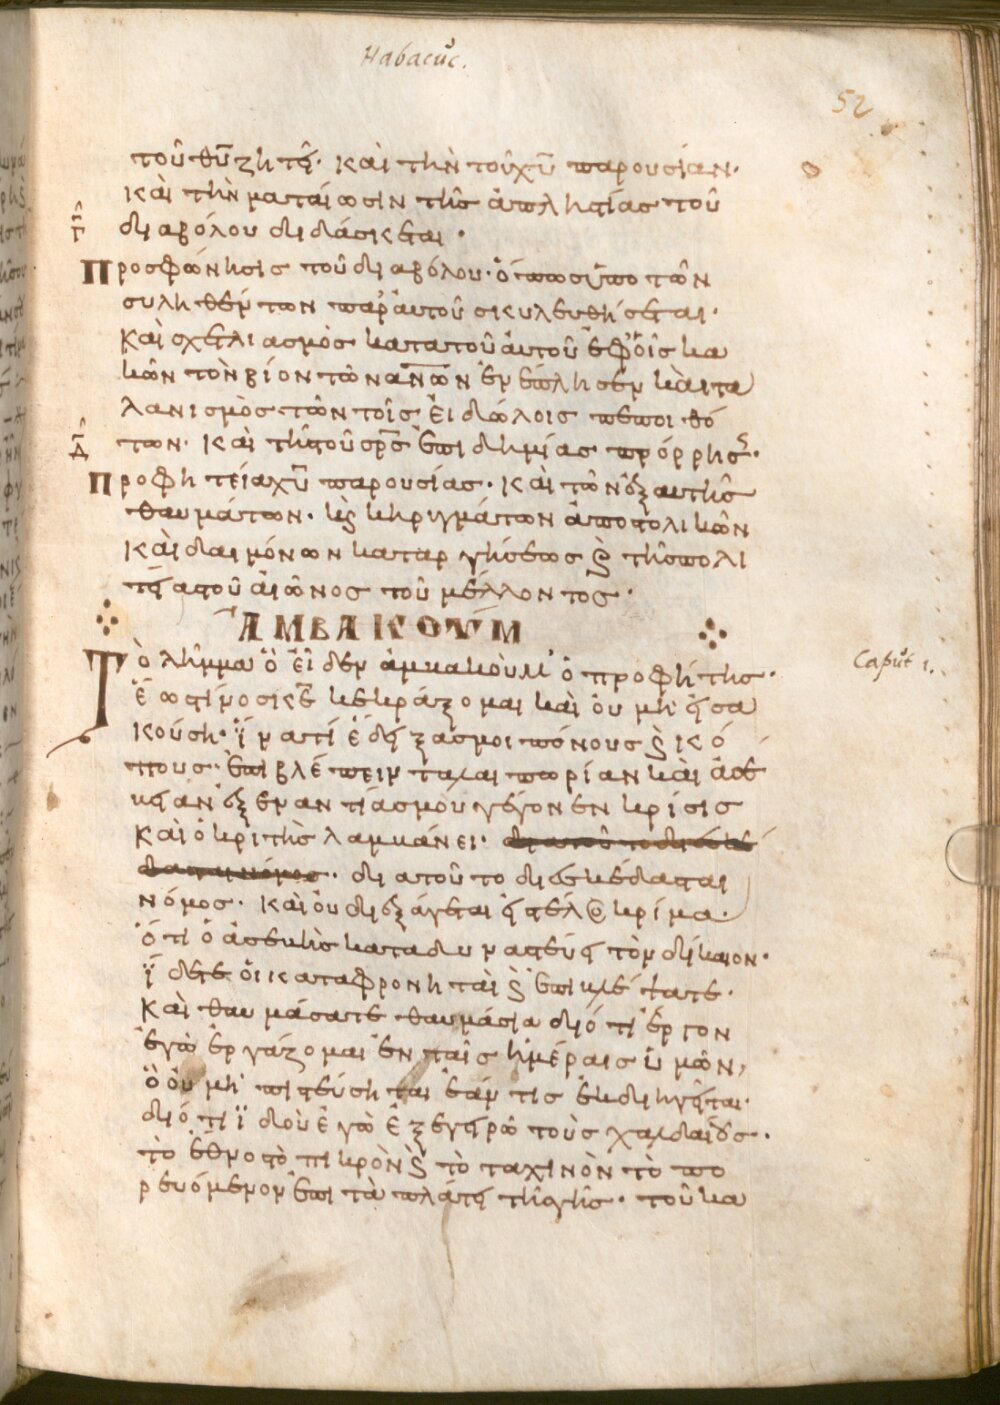 Habacúc.
52
τοῦ θῡ ζητεῖ· καὶ τὴν τοῦ χῡ παρουσίαν·
καὶ τὴν ματαίωσιν τῆς ἀπληστίας τοῦ
Γ διαβόλου διδάσκεται·
Προσφώνησις τοῦ διαβόλου· ὅπως ὑπὸ τῶν
συληθέντων παρ' αὐτοῦ σκυλευθήσεται·
καὶ σχετλιασμὸς κατὰ τοῦ αὐτοῦ ἐφ' οἷς κα
κῶν τὸν βίον τῶν ἀν̅ω̅ν ἐνέπλησεν καὶ τα
λανισμὸς τῶν τοῖς εἰδώλοις πεποιθό
Δ των· καὶ τῆς τοῦ σρ̅ς ἐπιδημίας πρόρρησις·
Προφητεία χῡ παρουσίας· καὶ τῶν ἐξ αὐτῆς
θαυμάτων· κς κηρυγμάτων ἀποστολικῶν
καὶ δαιμόνων καταργήσεως ς τῆς πολι
τείας τοῦ αἰῶνος τοῦ μέλλοντος·
ἈΜΒΑΚΟΥΜ
Τὸ λῆμμα ὃ εἶδεν ἀμβακοὺμ ὁ προφήτης·
Caput 1.
ἕως τίνος κ̅ε κεκράξομαι καὶ οὐ μὴ εἰσα
κούση· ἵνα τί ἔδειξάς μοι πόνους ς κό
πους· ἐπιβλέπειν ταλαιπωρίαν καὶ ἀσέ
βειαν ἐξ ἐναντίας μου γέγονεν κρίσις
καὶ ὁ κριτὴς λαμβάνει·
διὰ τοῦτο διεσκέδασται
νόμος· καὶ οὐ διεξάγεται εἰς τέλος κρίμα·
ὅτι ὁ ἀσεβὴς καταδυναστεύει τὸν δίκαιον·
ἴδετε οἱ καταφρονηταὶ ς ἐπιβλέψατε·
καὶ θαυμάσατε θαυμάσια διότι ἔργον
ἐγὼ ἐργάζομαι ἐν ταῖς ἡμέραις ὑμῶν,
ὃ οὐ μὴ πιστεύσηται ἐάν τις ἐκδιηγεῖται·
διότι ἰδοὺ ἐγὼ ἐξεγείρω τοὺς χαλδαίους·
τὸ ἔθνος τὸ πικρὸν ς τὸ ταχινὸν τὸ πο
ρευόμενον ἐπὶ τὰ πλάτει τῆς γῆς· τοῦ κα